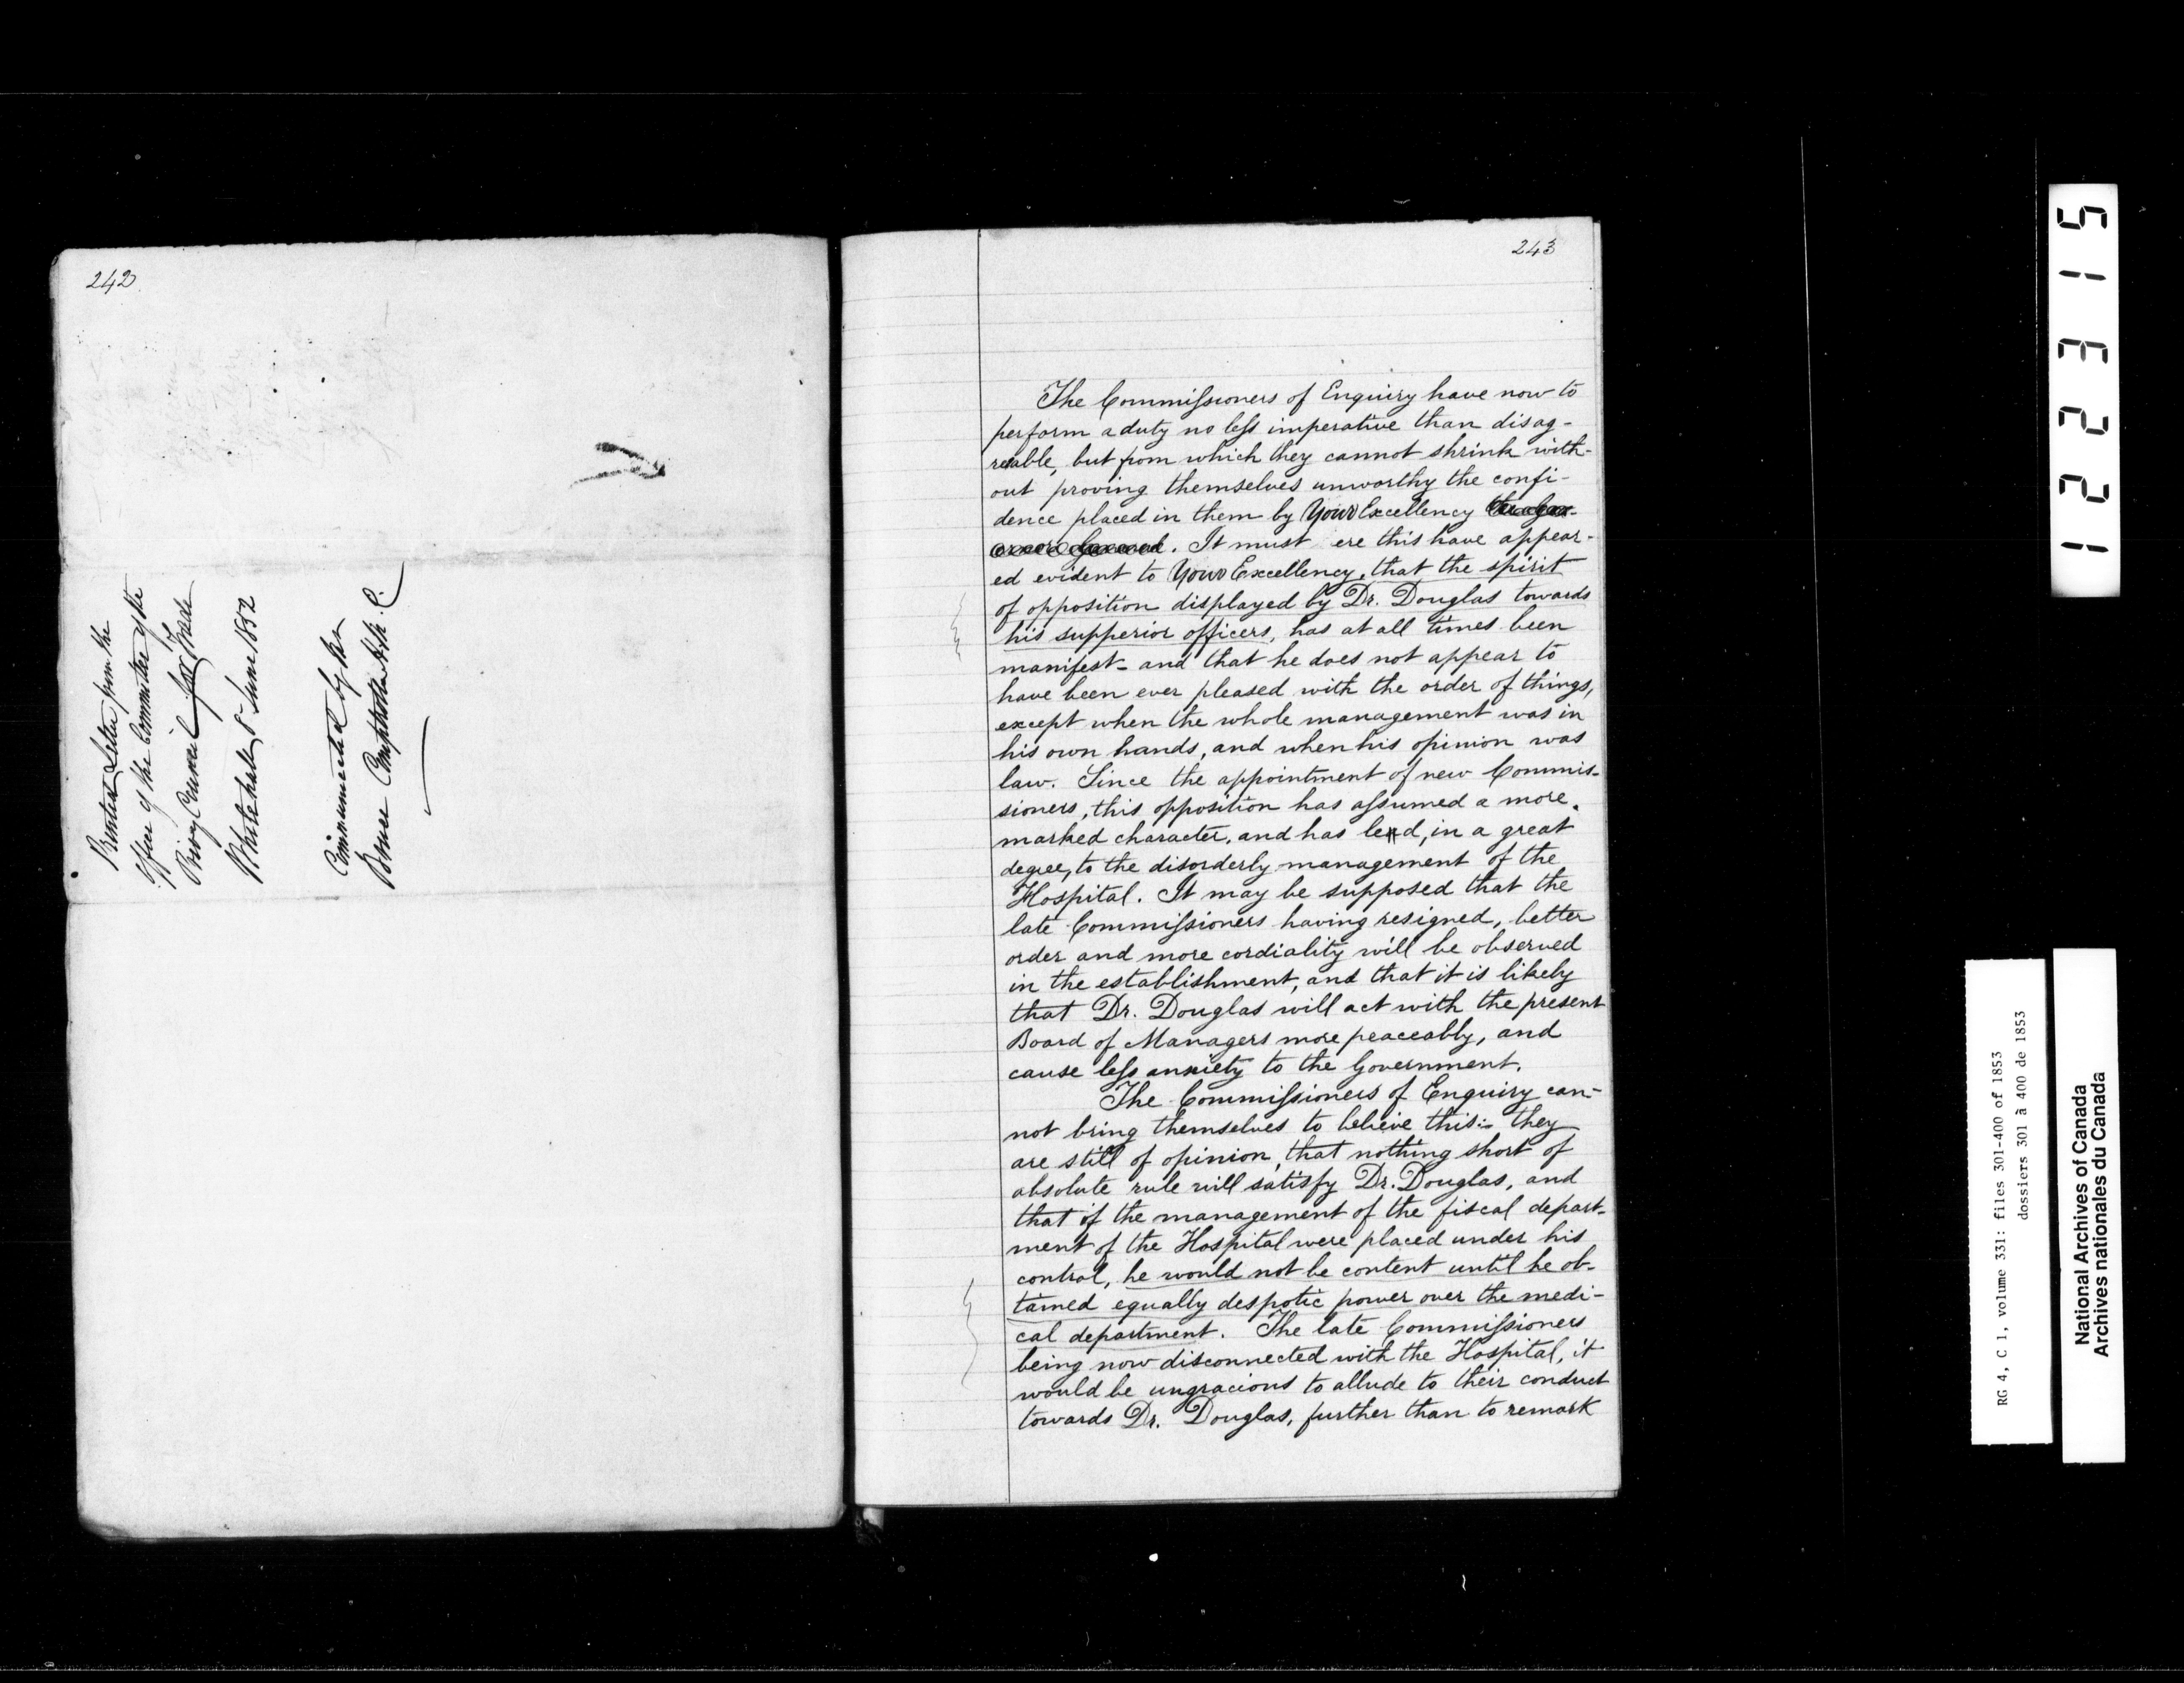 242
Printed Letter from the
Office of the Committee of the
Privy Council for Trade
Whitehall 5 June 1852
Communicated by the
243
The Commissioners of Enquiry have now to
perform a duty no less imperative than disag-
reable, but from which they cannot shrink with-
out proving themselves unworthy the confi-
dence placed in them by Your Excellency the Gov-
ernor General. It must ere this have appear-
ed evident to Your Excellency, that the spirit
of opposition displayed by Dr. Douglas towards
his supperior officers, has at all times been
manifest - and that he does not appear to
have been ever pleased with the order of things,
except when the whole management was in
his own hands, and when his opinion was
law. Since the appointment of new Commis-
sioners, this opposition has assumed a more
marked character, and has led, in a great
degree, to the disorderly management of the
Hospital. It may be supposed that the
late Commissioners having resigned, better
order and more cordiality will be observed
in the establishment, and that it is likely
that Dr. Douglas will act with the present
Board of Managers more peaceably, and
cause less anxiety to the Government.
The Commissioners of Enquiry can-
not bring themselves to believe this:- they
are still of opinion, that nothing short of
absolute rule will satisfy Dr. Douglas, and
that if the management of the fiscal depart-
ment of the Hospital were placed under his
control, he would not be content until he ob-
tained equally despotic power over the medi-
cal department. The late Commissioners
being now disconnected with the Hospital, it
would be ungracious to allude to their conduct
towards Dr. Douglas, further than to remark
122315
RG 4, C 1, volume 331: files 301-400 of 1853
dossiers 301 à 400 de 1853
National Archives of Canada
Archives nationales du Canada